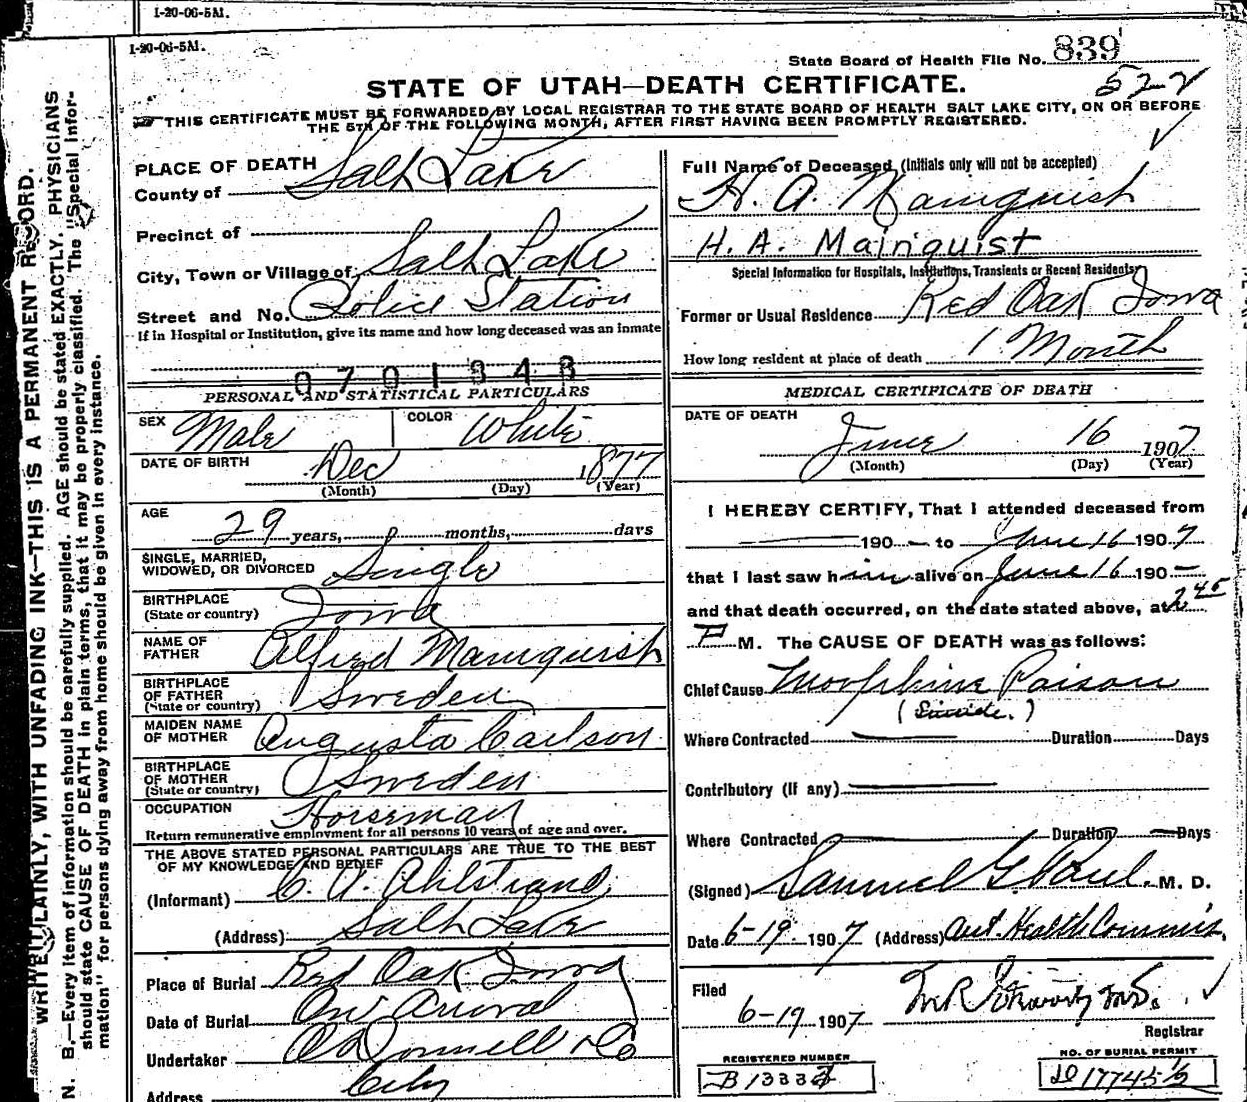 1-20-06-5M.
1-20-06-5M.
State Board of Health File No. 839
522
STATE OF UTAH—DEATH CERTIFICATE.
THIS CERTIFICATE MUST BE FORWARDED BY LOCAL REGISTRAR TO THE STATE BOARD OF HEALTH SALT LAKE CITY, ON OR BEFORE
THE 5TH OF THE FOLLOWING MONTH, AFTER FIRST HAVING BEEN PROMPTLY REGISTERED.
WRITE PLAINLY, WITH UNFADING INK—THIS IS A PERMANENT RECORD.
N. B.—Every item of information should be carefully supplied. AGE should be stated EXACTLY. PHYSICIANS
should state CAUSE OF DEATH in plain terms, that it may be properly classified. The "Special Infor-
mation" for persons dying away from home should be given in every instance.
PLACE OF DEATH
County of Salt Lake
Precinct of
City, Town or Village of Salt Lake
Street and No. Police Station
If in Hospital or Institution, give its name and how long deceased was an inmate
0701343
PERSONAL AND STATISTICAL PARTICULARS
SEX Male COLOR White
DATE OF BIRTH Dec 1877
(Month) (Day) (Year)
AGE 29 years, months, days
SINGLE, MARRIED,
WIDOWED, OR DIVORCED Single
BIRTHPLACE
(State or country) Iowa
NAME OF
FATHER Alfred Mainquist
BIRTHPLACE
OF FATHER
(State or country) Sweden
MAIDEN NAME
OF MOTHER Augusta Carlson
BIRTHPLACE
OF MOTHER
(State or country) Sweden
OCCUPATION Horseman
Return remunerative employment for all persons 10 years of age and over.
THE ABOVE STATED PERSONAL PARTICULARS ARE TRUE TO THE BEST
OF MY KNOWLEDGE AND BELIEF
(Informant) C. A. Ahlstrand
(Address) Salt Lake
Place of Burial Red Oak Iowa
Date of Burial On Arrival
Undertaker O'Donnell & Co
Address City
Full Name of Deceased (Initials only will not be accepted)
H. A. Mainquist
H. A. Mainquist
Special Information for Hospitals, Institutions, Transients or Recent Residents
Former or Usual Residence Red Oak Iowa
How long resident at place of death 1 Month
MEDICAL CERTIFICATE OF DEATH
DATE OF DEATH
June 16 1907
(Month) (Day) (Year)
I HEREBY CERTIFY, That I attended deceased from
190 — to June 16 1907
that I last saw him alive on June 16 190 —
and that death occurred, on the date stated above, at 2 45
P M. The CAUSE OF DEATH was as follows:
Chief Cause Morphine Poison
(Suicide.)
Where Contracted Duration Days
Contributory (If any)
Where Contracted Duration Days
(Signed) Samuel G. Paul. M. D.
Date 6-19 1907 (Address) Health Commis.
Filed
6-19 1907
Registrar
REGISTERED NUMBER
NO. OF BURIAL PERMIT